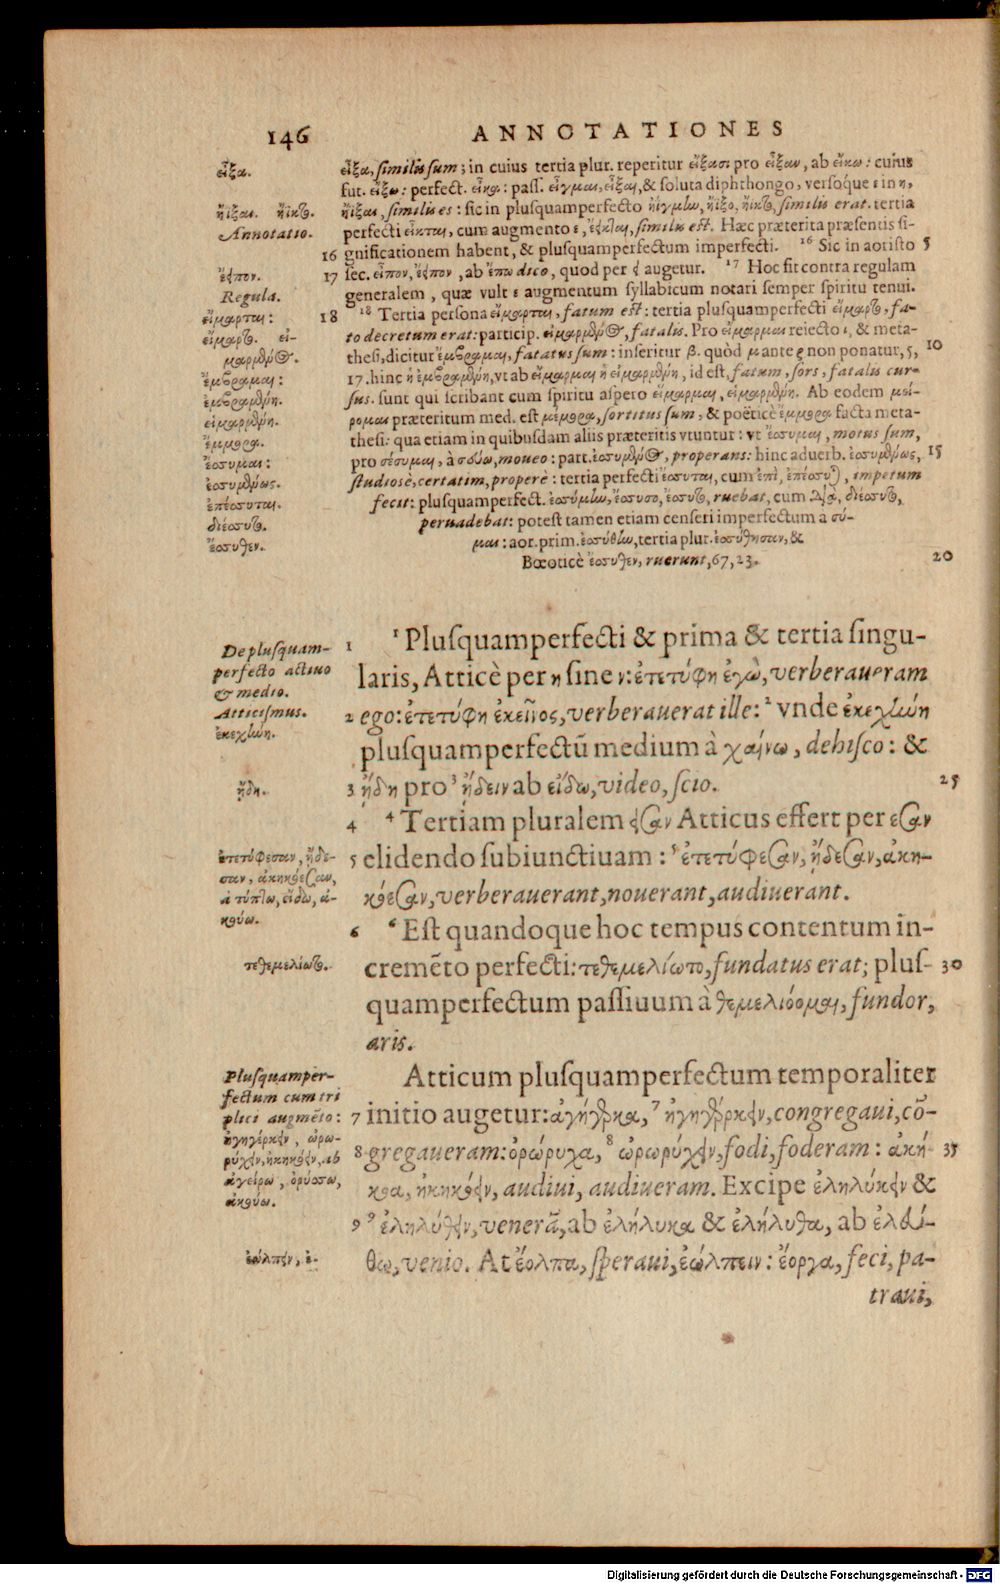 146 ANNOTATIONES
εἶξα.
ἤϊξαι. ἤϊκτο.
Annotatio.
ἔειπον.
Regula.
εἵμαρται:
εἵμαρτο. εἱ-
μαρμένος.
ἔμβραμαι:
ἐμβραμένη.
εἱμαρμένη.
ἔμμορα.
ἔσσυμαι:
ἐσσυμένως.
ἐπέσσυται.
διέσσυτο.
ἔσσυθεν.
εἶξα, similis sum; in cuius tertia plur. reperitur εἴξασι pro εἶξαν, ab εἴκω: cuius
fut. εἴξω: perfect. εἶκα: pass. εἶγμαι, εἶξαι, & soluta diphthongo, versóque ε in η,
ἤϊξαι, similis es: sic in plusquamperfecto ἠΐγμην, ἤϊξο, ἤϊκτο, similis erat. tertia
perfecti εἶκται, cum augmento ε, ἔϊκται, similis est. Hæc præterita præsentis si-
16 gnificationem habent, & plusquamperfectum imperfecti. 16 Sic in aoristo 5
17 sec. εἶπον, ἔειπον, ab ἔπω dico, quod per ει augetur. 17 Hoc fit contra regulam
generalem, quæ vult ε augmentum syllabicum notari semper spiritu tenui.
18 18 Tertia persona εἵμαρται, fatum est: tertia plusquamperfecti εἵμαρτο, fa-
to decretum erat: particip. εἱμαρμένος, fatalis. Pro εἵμαρμαι reiecto ι, & meta-
thesi, dicitur ἔμβραμαι, fatatus sum: inseritur β. quòd μ ante ρ non ponatur, 5, 10
17. hinc ἡ ἐμβραμένη, vt ab εἵμαρμαι ἡ εἱμαρμένη, id est, fatum, sors, fatalis cur-
sus. sunt qui scribant cum spiritu aspero εἵμαρμαι, εἱμαρμένη. Ab eodem μεί-
ρομαι præteritum med. est μέμορα, sortitus sum, & poëticè ἔμμορα facta meta-
thesi: qua etiam in quibusdam aliis præteritis vtuntur: vt ἔσσυμαι, motus sum,
pro σέσυμαι, à σεύω, moueo: part. ἐσσυμένος, properans: hinc aduerb. ἐσσυμένως, 15
studiosè, certatim, properè: tertia perfecti ἔσσυται, cum ἐπὶ, ἐπέσσυται, impetum
fecit: plusquamperfect. ἐσσύμην, ἔσσυσο, ἔσσυτο, ruebat, cum διὰ, διέσσυτο,
peruadebat: potest tamen etiam censeri imperfectum a σύ-
μαι: aor. prim. ἐσσύθην, tertia plur. ἐσσύθησαν, &
Bœoticè ἔσσυθεν, ruerunt, 67, 23. 20
De plusquam-
perfecto actiuo
& medio.
Atticismus.
ἐκεχήνη.
ᾔδη.
ἐτετύφεσαν, ᾔδε-
σαν, ἀκηκόεσαν,
à τύπτω, εἴδω, ἀ-
κούω.
τεθεμελίωτο.
1 1 Plusquamperfecti & prima & tertia singu-
laris, Atticè per η sine ν: ἐτετύφη ἐγὼ, verberaueram
2 ego: ἐτετύφη ἐκεῖνος, verberauerat ille: 2 vnde ἐκεχήνη
plusquamperfectū medium à χαίνω, dehisco: &
3 ᾔδη pro 3 ᾔδειν ab εἴδω, video, scio. 25
4 4 Tertiam pluralem εισαν Atticus effert per εσαν
5 elidendo subiunctiuam: 5 ἐτετύφεσαν, ᾔδεσαν, ἀκη-
κόεσαν, verberauerant, nouerant, audiuerant.
6 6 Est quandoque hoc tempus contentum in-
cremēto perfecti: τεθεμελίωτο, fundatus erat; plus- 30
quamperfectum passiuum à θεμελιόομαι, fundor,
aris.
Plusquamper-
fectum cum tri
plici augmēto:
ἠγηγέρκειν, ὠρω-
ρύχειν, ἠκηκόειν, ab
ἀγείρω, ὀρύσσω,
ἀκούω.
ἐώλπειν, ἐ-
Atticum plusquamperfectum temporaliter
7 initio augetur: ἀγήγερκα, 7 ἠγηγέρκειν, congregaui, cō-
8 gregaueram: ὀρώρυχα, 8 ὠρωρύχειν, fodi, foderam: ἀκή- 35
κοα, ἠκηκόειν, audiui, audiueram. Excipe ἐληλύκειν &
9 9 ἐληλύθειν, venerā, ab ἐλήλυκα & ἐλήλυθα, ab ἐλεύ-
θω, venio. At ἔολπα, speraui, ἐώλπειν: ἔοργα, feci, pa-
traui,
Digitalisierung gefördert durch die Deutsche Forschungsgemeinschaft - DFG